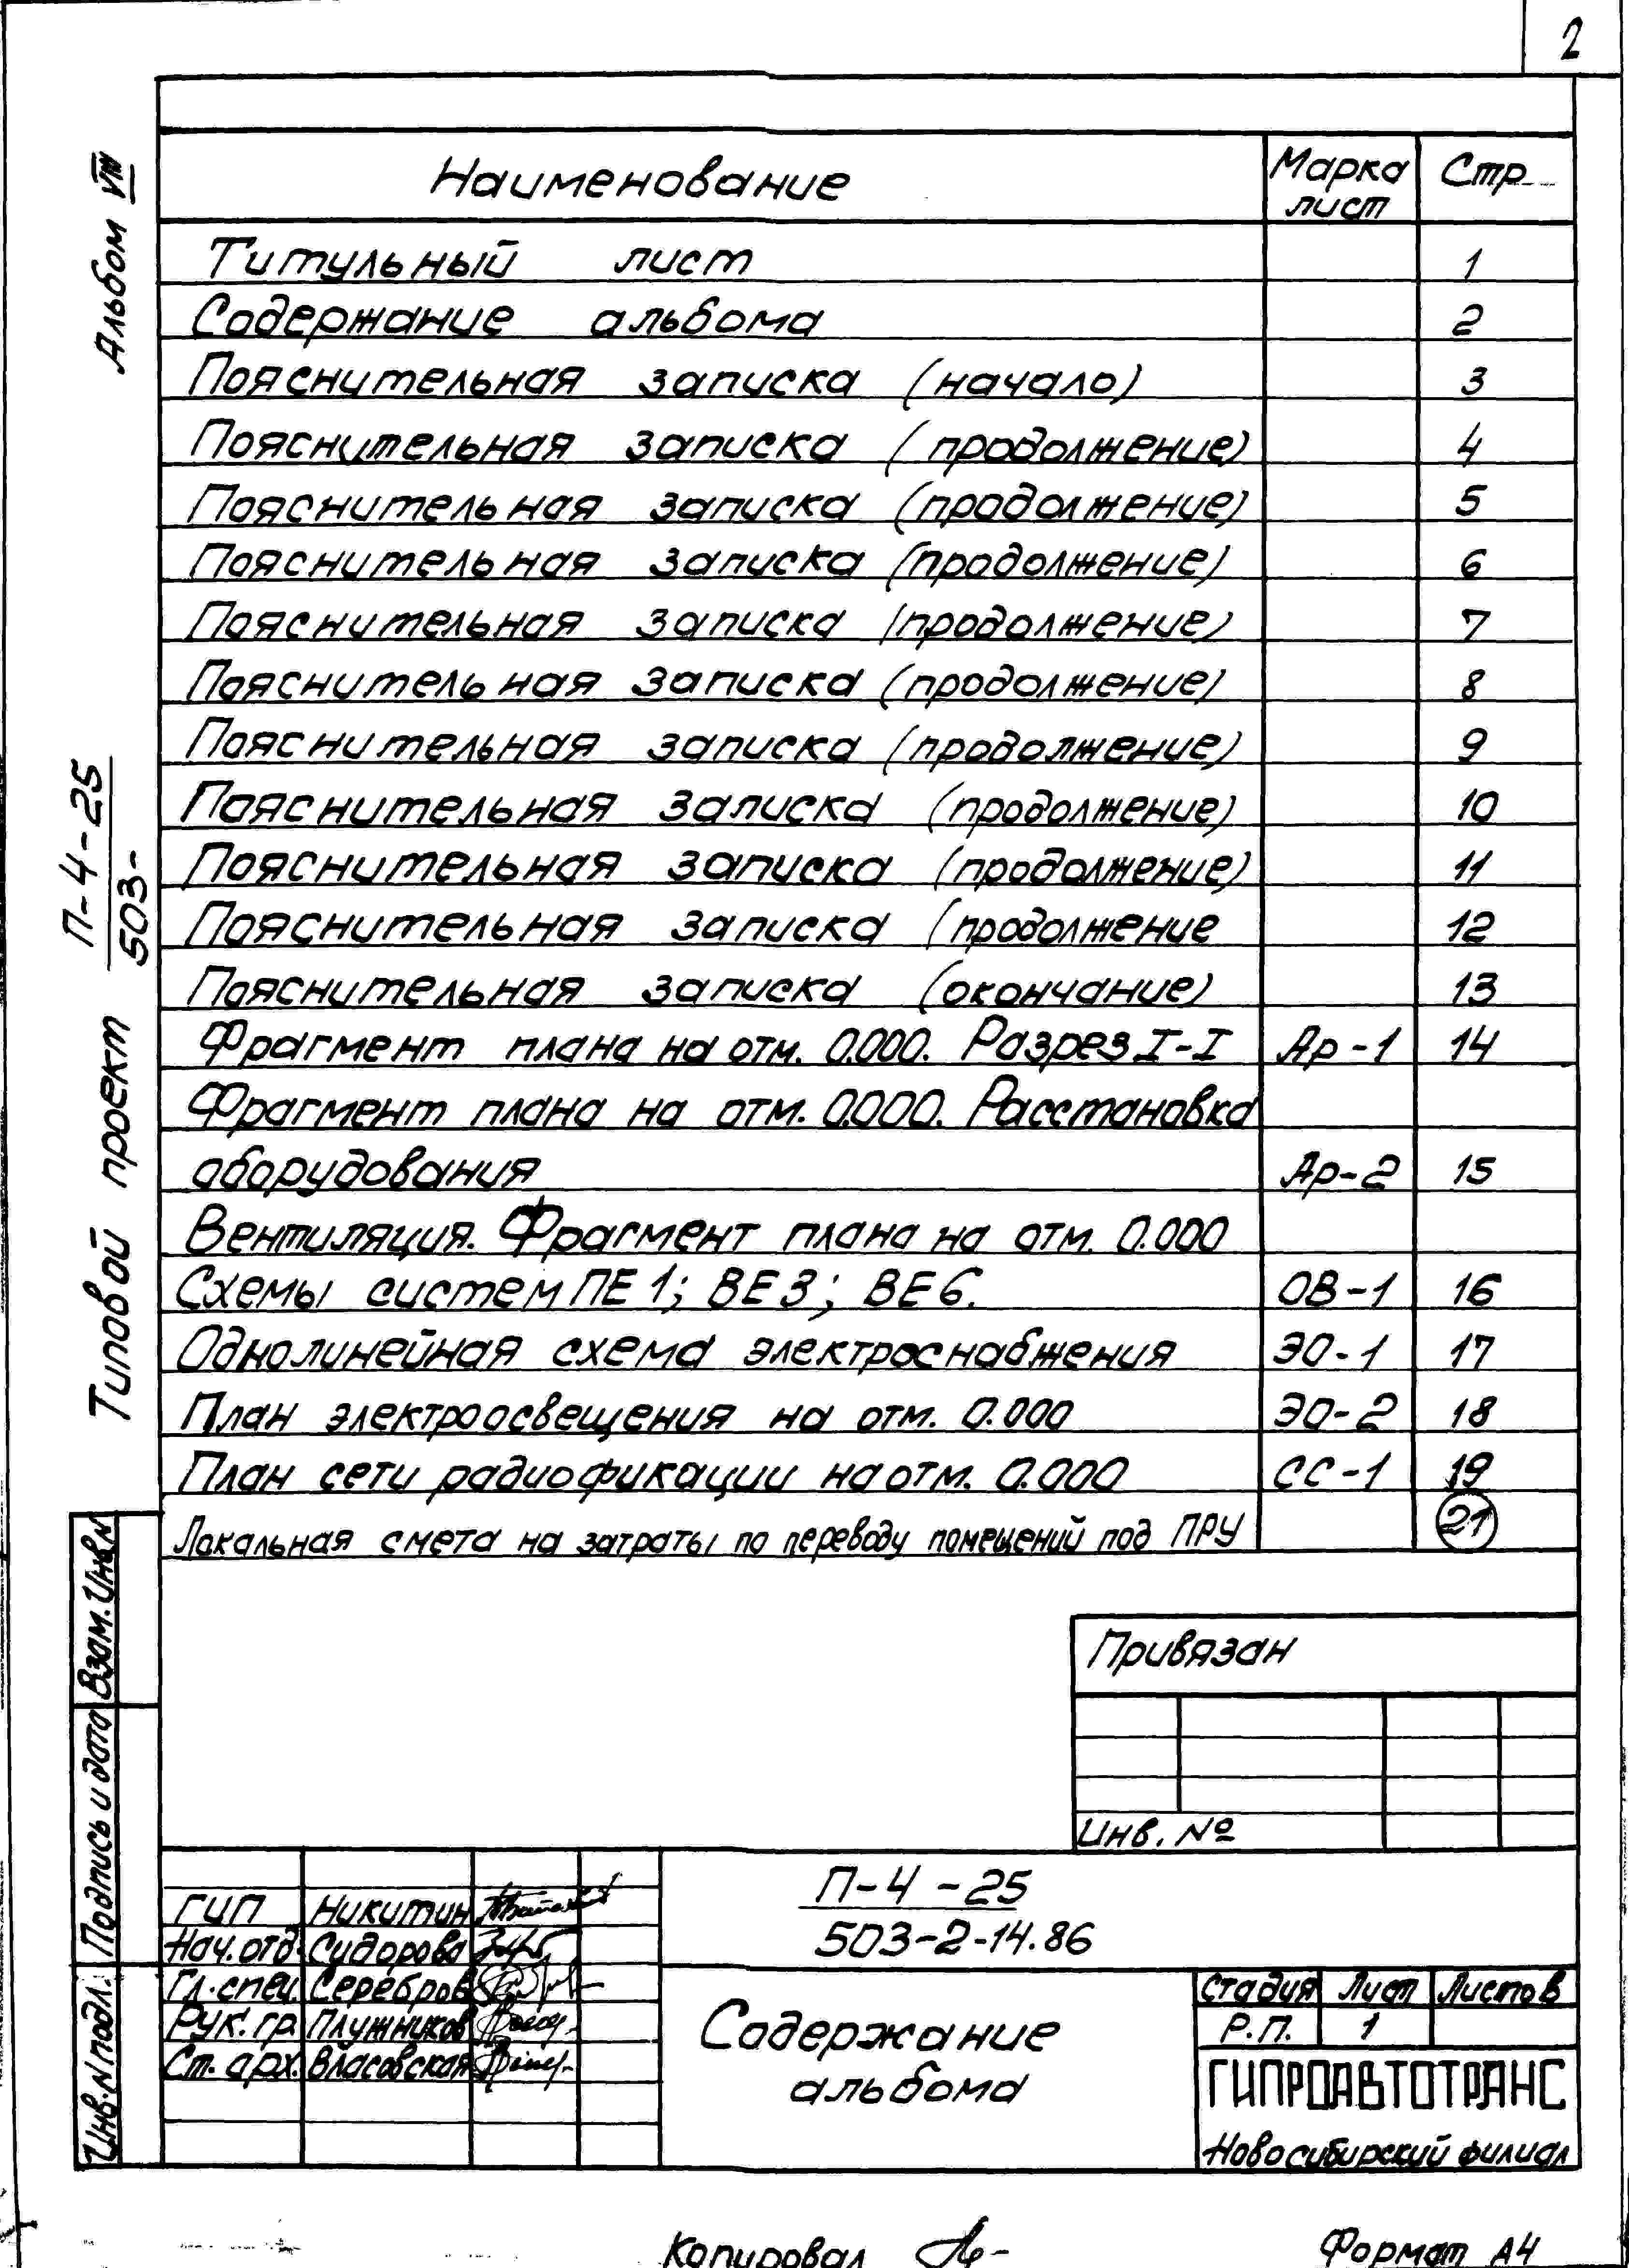 2
Альбом VIII
Типовой проект П-4-25
503-
Наименование Марка Стр
лист
Титульный лист 1
Содержание альбома 2
Пояснительная записка (начало) 3
Пояснительная записка (продолжение) 4
Пояснительная записка (продолжение) 5
Пояснительная записка (продолжение) 6
Пояснительная записка (продолжение) 7
Пояснительная записка (продолжение) 8
Пояснительная записка (продолжение) 9
Пояснительная записка (продолжение) 10
Пояснительная записка (продолжение) 11
Пояснительная записка (продолжение 12
Пояснительная записка (окончание) 13
Фрагмент плана на отм. 0.000. Разрез I-I Ар-1 14
Фрагмент плана на отм. 0.000. Расстановка
оборудования Ар-2 15
Вентиляция. Фрагмент плана на отм. 0.000
Схемы систем ПЕ1; ВЕ3; ВЕ6. ОВ-1 16
Однолинейная схема электроснабжения ЭО-1 17
План электроосвещения на отм. 0.000 ЭО-2 18
План сети радиофикации на отм. 0.000 СС-1 19
Локальная смета на затраты по переводу помещений под ПРУ 21
Взам. Инв.N
Подпись и дата
Инв.N подл.
Привязан
Инв. №
ГИП Никитин
Нач.отд. Судорова
Гл.спец. Серебров
Рук. гр. Плужников
Ст. арх. Власовская
П-4-25
503-2-14.86
Содержание
альбома
Стадия Лист Листов
Р.П. 1
ГИПРОАВТОТРАНС
Новосибирский филиал
Копировал
Формат А4